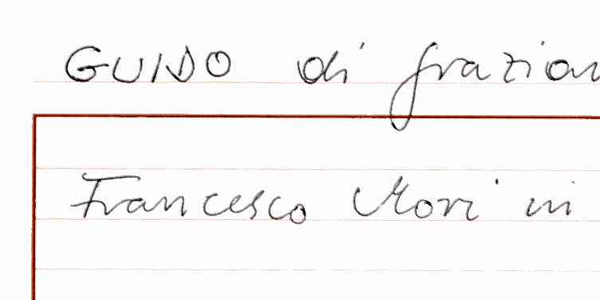 GUIDO di grazian
Francesco Mori in